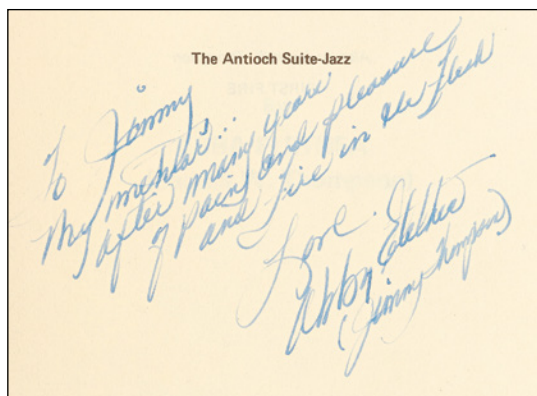 The Antioch Suite-Jazz
To Jimmy,
My mentor...
after many years
of pain and pleasure
and Fire in the Flesh
Love.
Abba Elethea
(Jimmy Thompson)